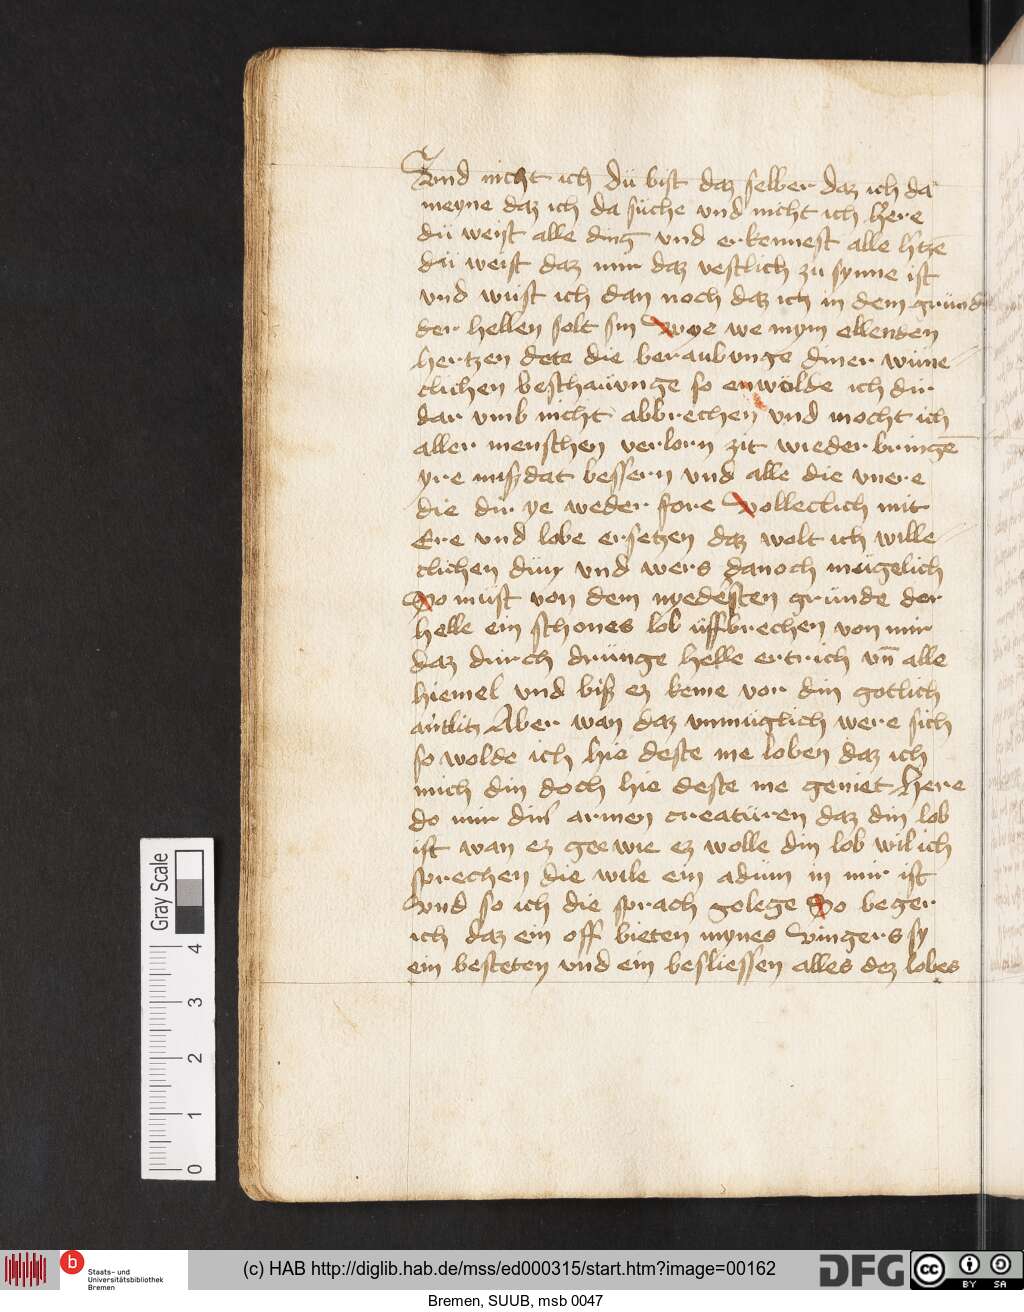 Vnd nicht ich dü bist daz selber daz ich da
meyne daz ich da süche vnd nicht ich Here
dü weist alle ding vnd erkennest alle htze
dü weist daz mir daz vestlich zu synne ist
vnd wüst ich dan noch daz ich in dem gründ
der hellen solt sin Woye we mym ellenden
hertzen dete die beraubunge diner wüne
clichen beschauünge so enwölde ich dir
dar vmb nicht abbrechen vnd mocht ich
aller menschen verlorn zit wieder bringē
yre missdat bessern vnd alle die vnere
die dir ye weder fore Vollectlich mit
Ere vnd lobe ersetzen daz wolt ich wille
clichen dün vnd wers danoch meügelich
So müst von dem nyedesten gründe der
helle ein schones lob üffbrechen von mir
daz dürch drünge helle ertrich vn̄ alle
hiemel vnd biß ez keme vor din gotlich
antlitz Aber wan daz vnmüglich were sich
so wolde ich hie deste me loben daz ich
mich din doch hie deste me geniet Here
do mir din armen creatüren daz din lob
ist wan ez gee wie ez wolle din lob wil ich
sprechen die wile ein adüm in mir ist
Vnd so ich die sprach gelege So beger
ich daz ein off bieten mynes Vingers sy
ein besteten vnd ein besliessen alles dez lobes
Gray Scale
4
3
2
1
0
b
Staats- und
Universitätsbibliothek
Bremen
(c) HAB http://diglib.hab.de/mss/ed000315/start.htm?image=00162
DFG
cc
BY SA
Bremen, SUUB, msb 0047